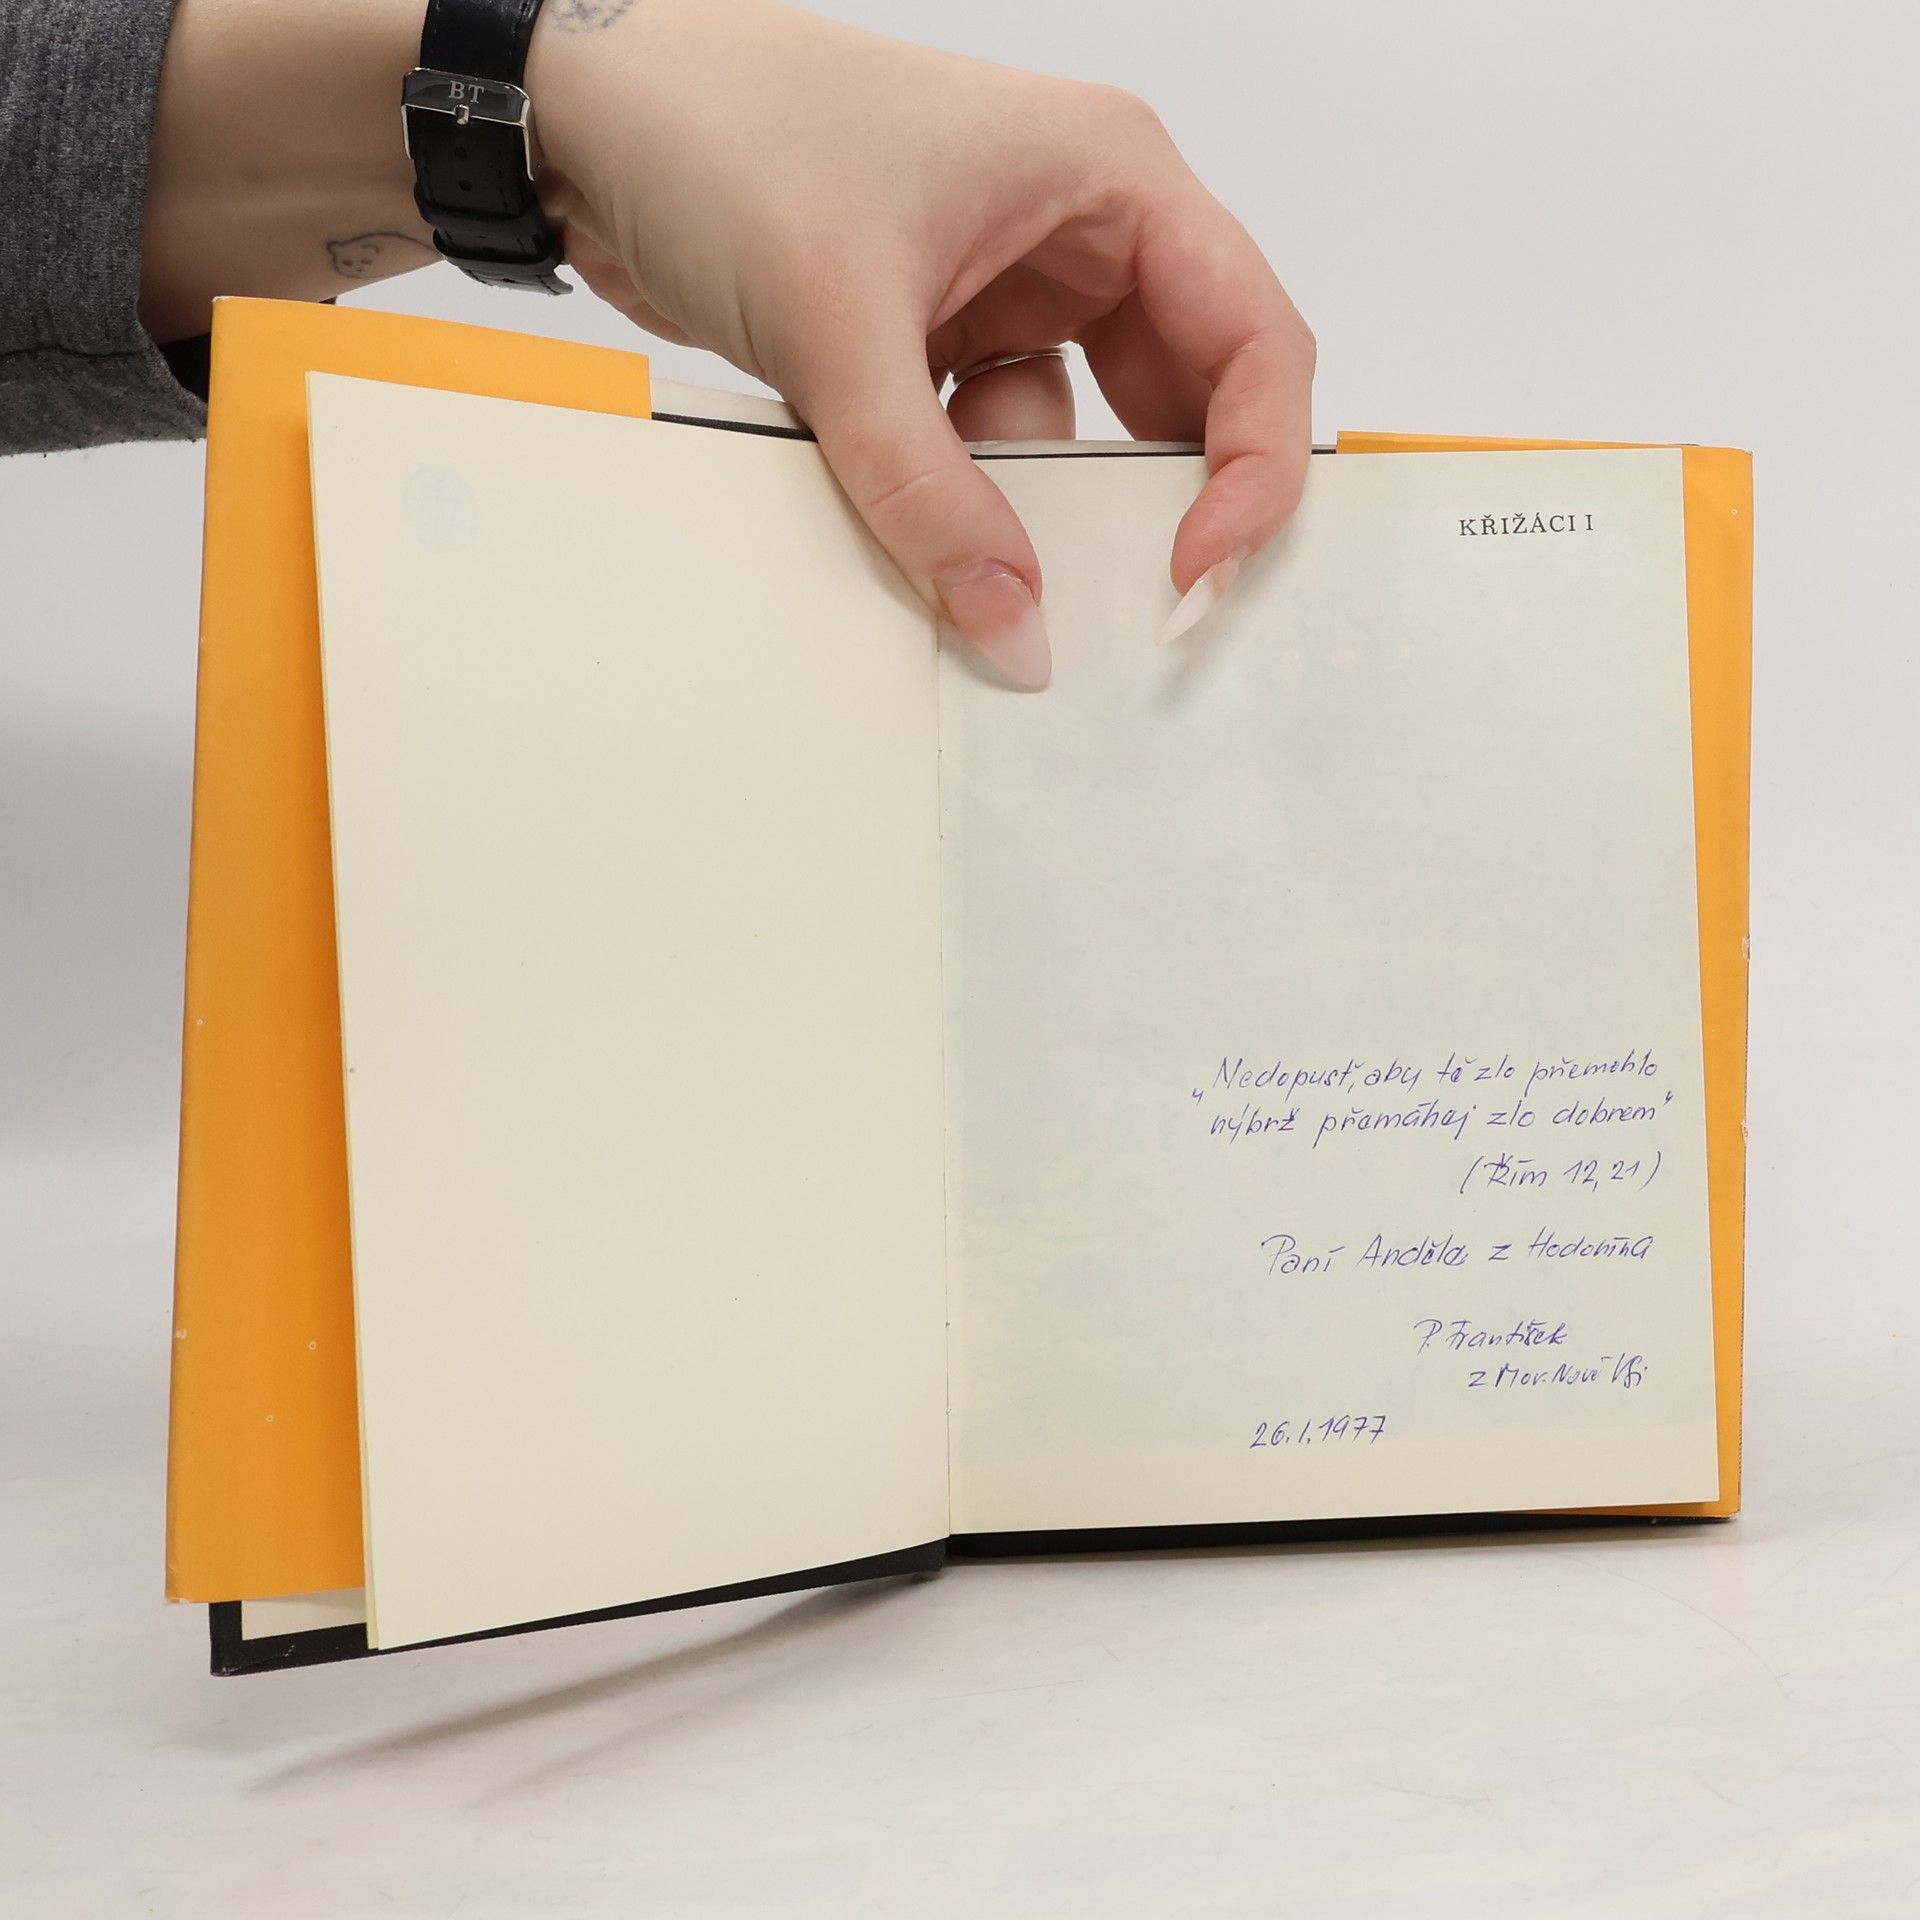 BT
KŘIŽÁCI I
„Nedopusť, aby tě zlo přemohlo
nýbrž přemáhej zlo dobrem"
(Řím 12,21)
Paní Anděla z Hodonína
P. František
z Mor. Nové Vsi
26.1.1977